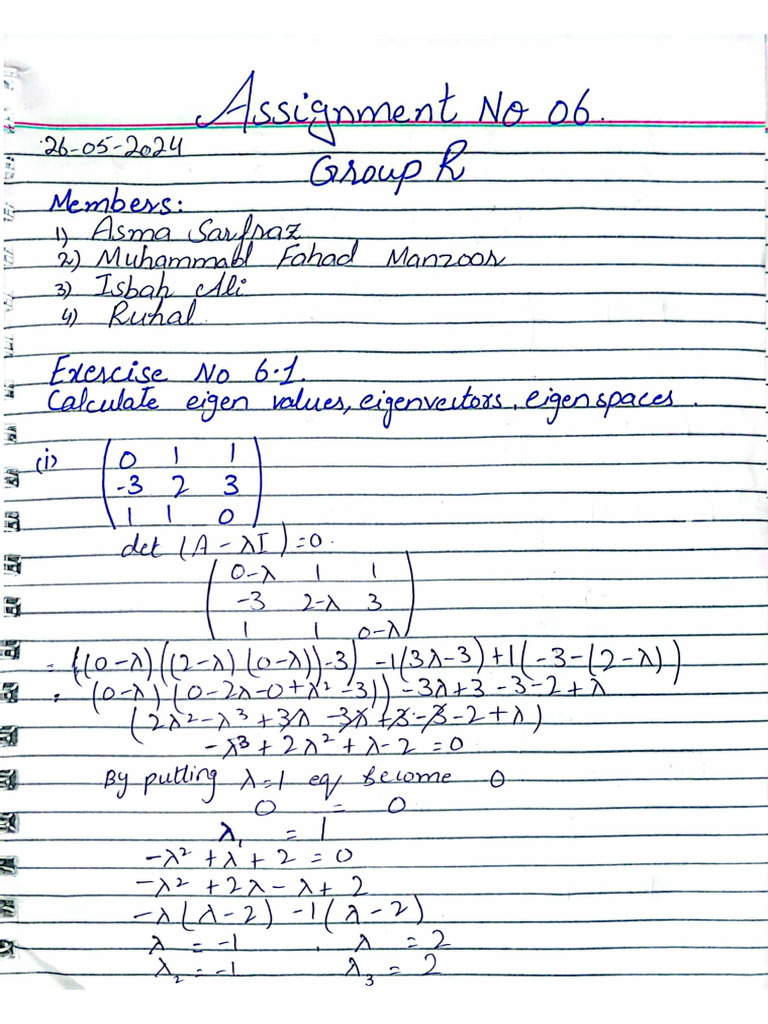 Assignment No 06.
26-05-2024
Group R
Members:
1) Asma Sarfraz
2) Muhammad Fahad Manzoor
3) Isbah Ali
4) Ruhal
Exercise No 6.1.
Calculate eigen values, eigenvectors, eigenspaces.
(i) ( 0 1 1
-3 2 3
1 1 0 )
det (A - λI) = 0
( 0-λ 1 1
-3 2-λ 3
1 1 0-λ )
= ((0-λ)((2-λ)(0-λ))-3) -1(3λ-3)+1(-3-(2-λ))
= (0-λ)(0-2λ-0+λ²-3)) -3λ+3-3-2+λ
(2λ²-λ³+3λ-3λ+3-3-2+λ)
-λ³+2λ²+λ-2 = 0
By putting λ=1 eq/ become 0
0 = 0
λ₁ = 1
-λ²+λ+2 = 0
-λ²+2λ-λ+2
-λ(λ-2) -1(λ-2)
λ = -1 , λ = 2
λ₂ = -1 λ₃ = 2